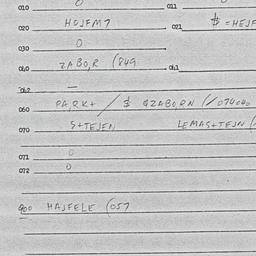 010 0 011
020 HOJFM7 021 $ = HEJF
030 0
040 ZABO,R (849 041
042 —
060 PA,RK+ / $ GZABO,RN (/074040
070 S+TEJEN LEMAS+TEJN (
071 0
072 0
900 HAJFELE (057